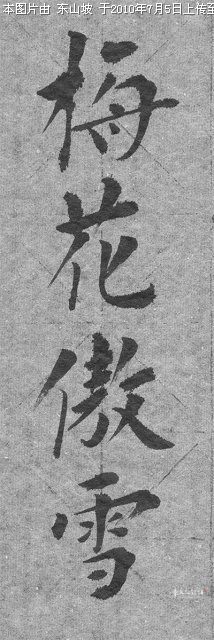 本图片由 东山坡 于2010年7月5日上传至
梅花傲雪